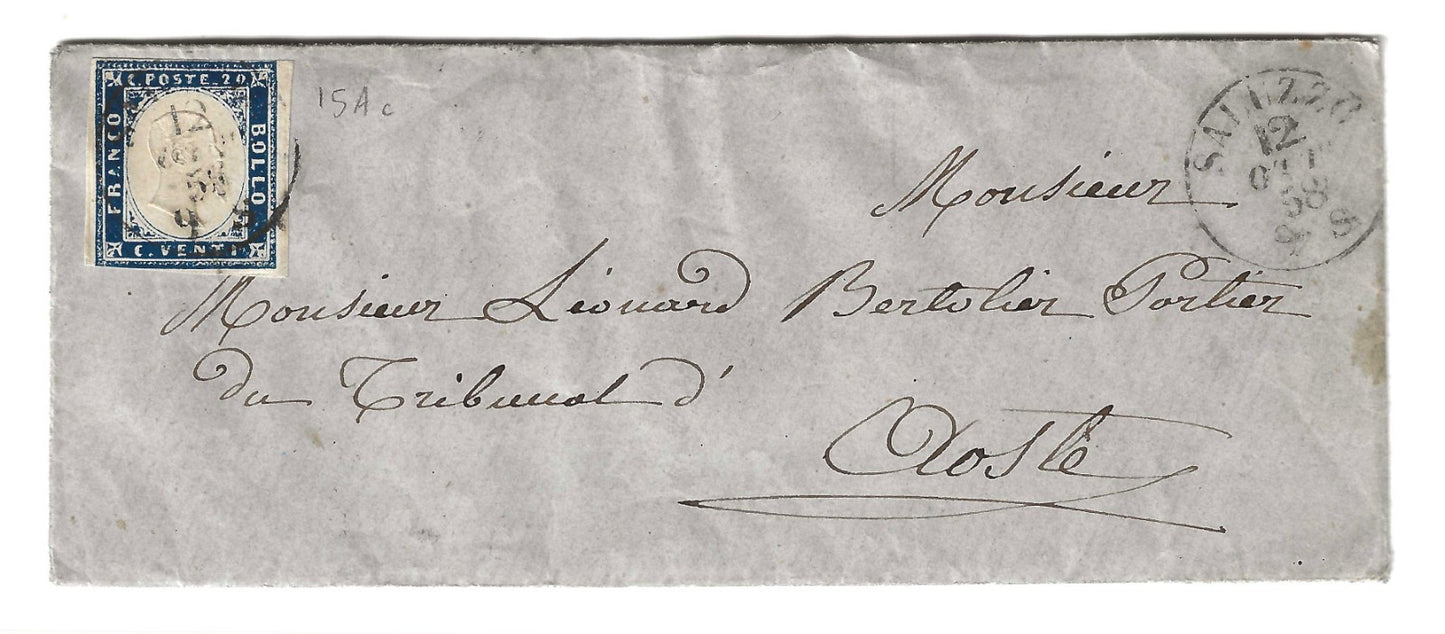 C. POSTE 20
FRANCO
BOLLO
C. VENTI
12
58
15Ac
SALUZZO
12
OTT
58
8 S
Monsieur
Monsieur Léonard Bertolier Portier
du Tribunal d'
Aoste